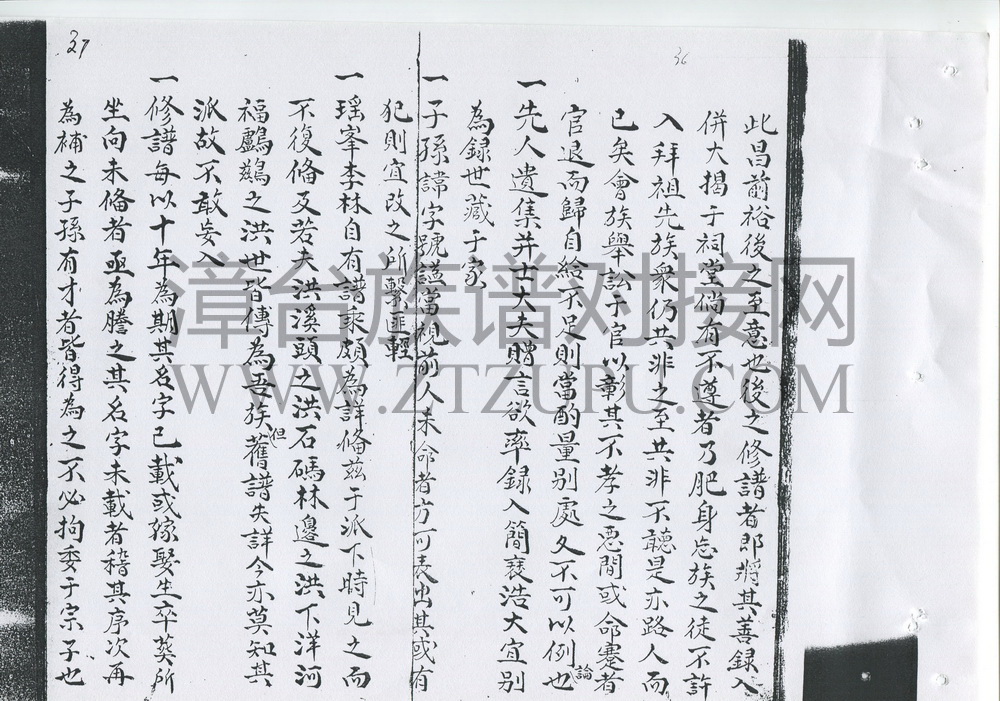 36
此昌前裕後之至意也後之修譜者即將其善録入
併大揭于祠堂倘有不遵者乃肥身忘族之徒不許
入拜祖先族衆仍共非之至共非不聽是亦路人而
已矣會族舉訟于官以彰其不孝之惡間或命蹇者
官退而歸自給不足則當酌量別處又不可以例論也
一先人遺集并士大夫贈言欲率録入簡袠浩大宜别
為録世藏于家
一子孫諱字號謚當視前人未命者方可表出其或有
犯則宜改之所繫匪輕
一瑶峯李林自有譜乘頗為詳俻兹于派下時見之而
不復俻及若夫洪溪頭之洪石碼林邊之洪下洋河
福鸕鷀之洪世皆傳為吾族但舊譜失詳今亦莫知其
派故不敢妄入
一修譜每以十年為期其名字已載或嫁娶生卒葵所
坐向未俻者亟為謄之其名字未載者稽其序次再
為補之子孫有才者皆得為之不必拘委于宗子也
37
漳台族谱对接网
WWW.ZTZUPU.COM